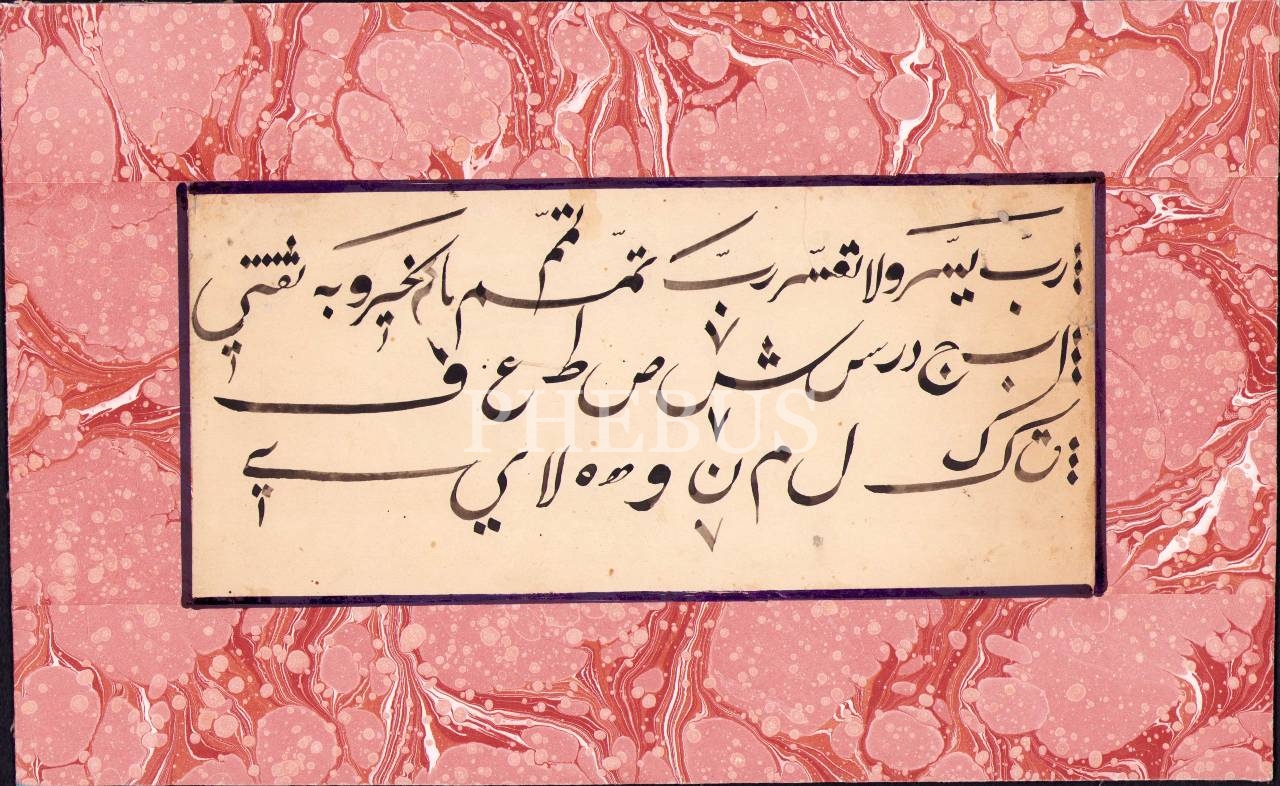 ربّ يسّر ولا تعسّر ربّ تمّم تمّم بالخير وبه ثقتي
ا ب ج د ر س ش ص ط ع ف
ق ك ك ل م ن و ه ه لا ي ے
PHEBUS